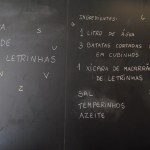 A
S
DE
LETRINHAS
V
V
Z
INGREDIENTES:
6
1 LITRO DE ÁGUA
3 BATATAS CORTADAS
EM CUBINHOS
1 XÍCARA DE MACARRÃO
DE LETRINHAS
SAL
TEMPERINHOS
AZEITE